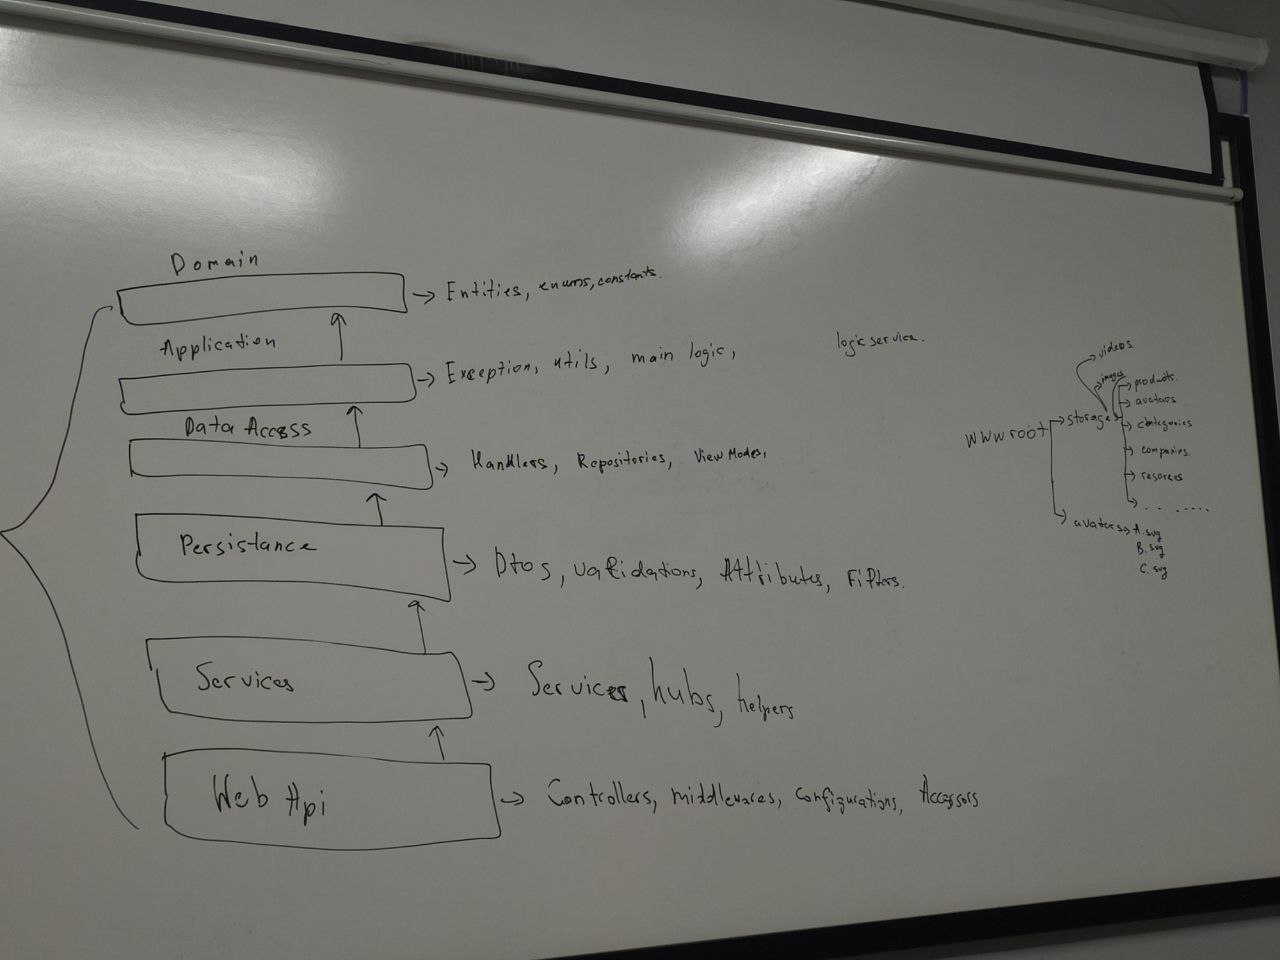 Domain
Entities, enums, constants.
Application
Exception, utils, main logic,
logic service.
Data Access
Handlers, Repositories, View Modes,
Persistance
Dtos, validations, Attributes, Filters.
Services
Services, hubs, helpers
Web Api
Controllers, middlewares, configurations, Accessors
videos
images
products.
avatars
wwwroot
storage
categories
companies.
. . . . . . .
avatars
A. svg
B. svg
C. svg